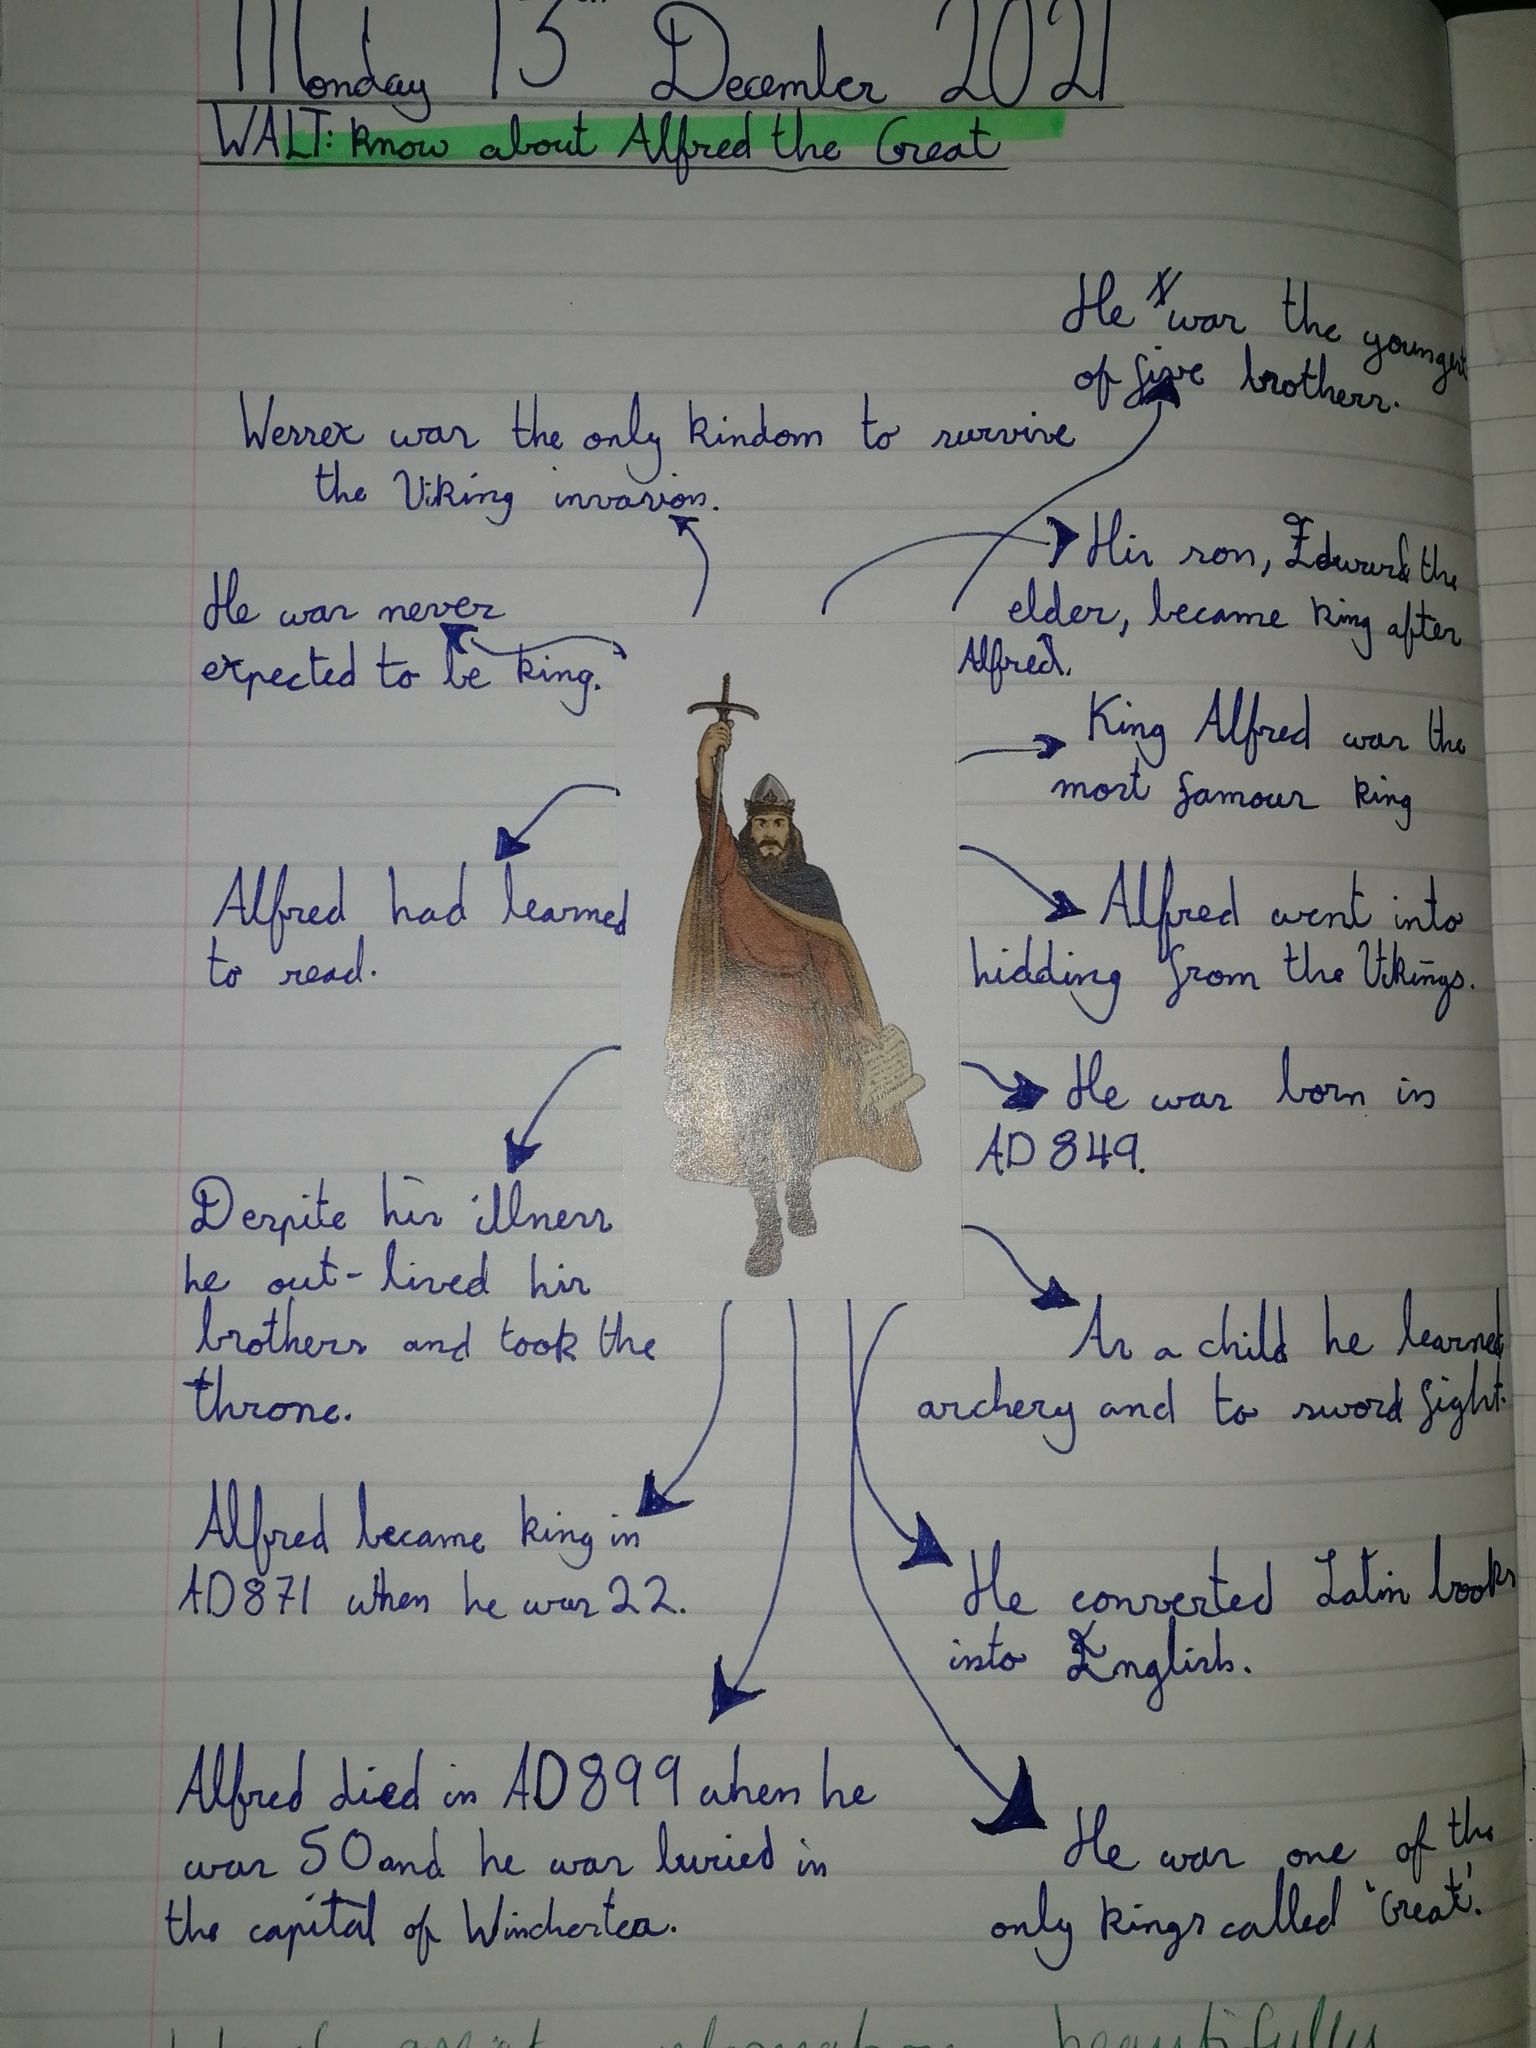 Monday 13th December 2021
WALT: Know about Alfred the Great
He was the youngest
of five brothers.
Wessex was the only kindom to survive
the Viking invasion.
His son, Edward the
elder, became king after
Alfred.
He was never
expected to be king.
King Alfred was the
most famous king
Alfred had learned
to read.
Alfred went into
hidding from the Vikings.
He was born in
AD 849.
Despite his illness
he out-lived his
brothers and took the
throne.
As a child he learned
archery and to sword fight.
Alfred became king in
AD871 when he was 22.
He converted Latin books
into English.
Alfred died in AD899 when he
was 50 and he was buried in
the capital of Winchestea.
He was one of the
only kings called 'Great'.
beautifully